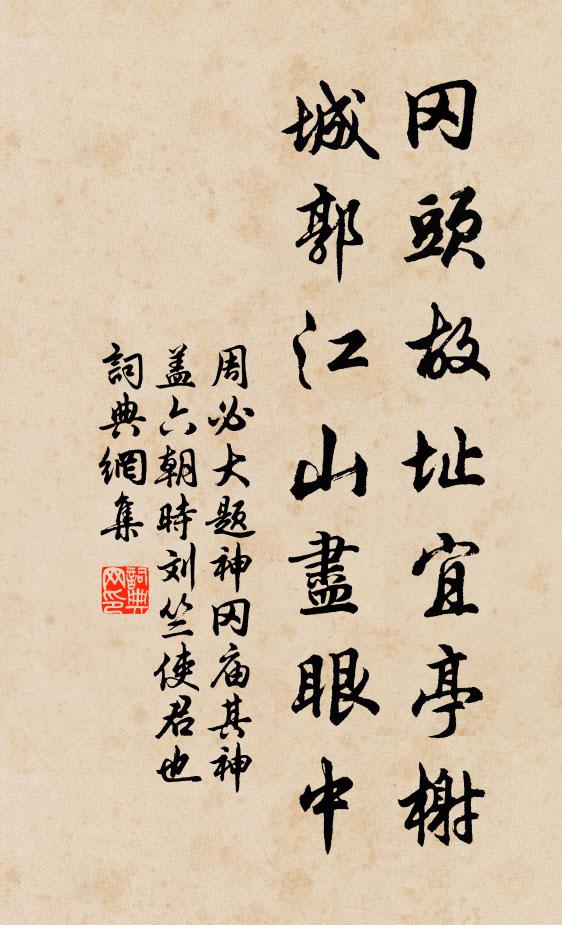 冈頭故址宜亭榭
城郭江山盡眼中
周必大题神冈庙其神
盖六朝時刘竺使君也
詞典網集
詞典网印